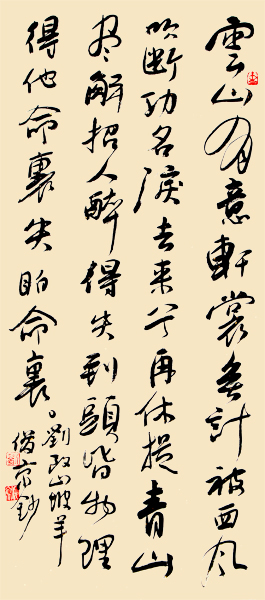 雲山有意軒裳無計被西風
吹斷功名淚去來兮再休提青山
尽解招人醉得失到頭皆物理
得他命裏失咱命裏
劉致山坡羊